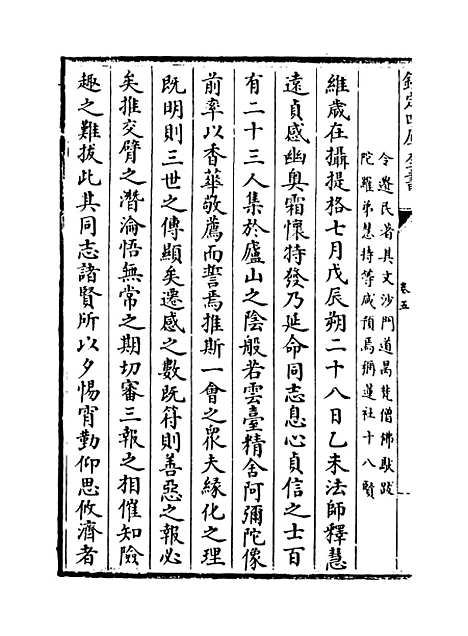 欽定四庫全書
卷五
令遺民著其文沙門道昺梵僧佛馱跋
陀羅弟慧持等咸預焉稱蓮社十八賢
維歲在攝提格七月戊辰朔二十八日乙未法師釋慧
遠貞感幽奧霜懷特發乃延命同志息心貞信之士百
有二十三人集於廬山之陰般若雲臺精舍阿彌陀像
前率以香華敬薦而誓焉推斯一會之眾夫緣化之理
既明則三世之傳顯矣遷感之數既符則善惡之報必
矣推交臂之潛淪悟無常之期切審三報之相催知險
趣之難拔此其同志諸賢所以夕惕宵勤仰思攸濟者